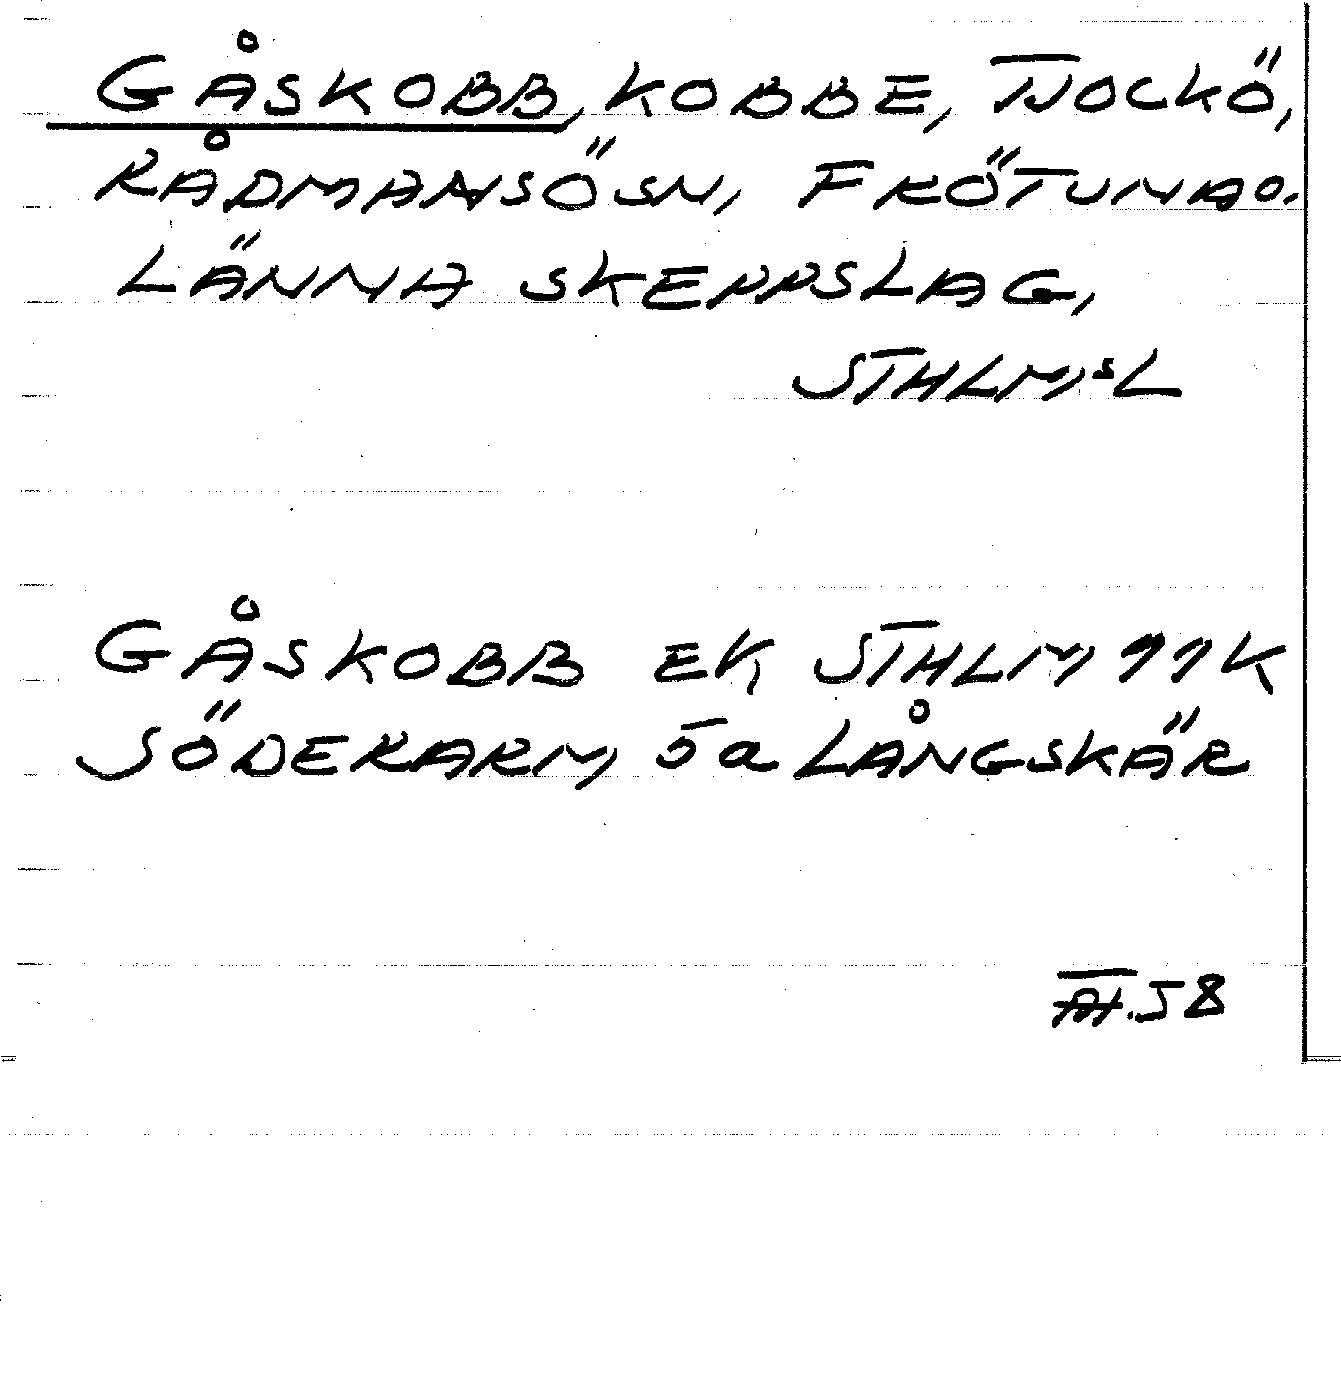 GÅSKOBB, KOBBE, TJOCKÖ,
RÅDMANSÖ SN, FRÖTUNA O.
LÄNNA SKEPPSLAG,
STHLMS L
GÅSKOBB EK STHLM 11 K
SÖDERARM, 5a LÅNGSKÄR
58